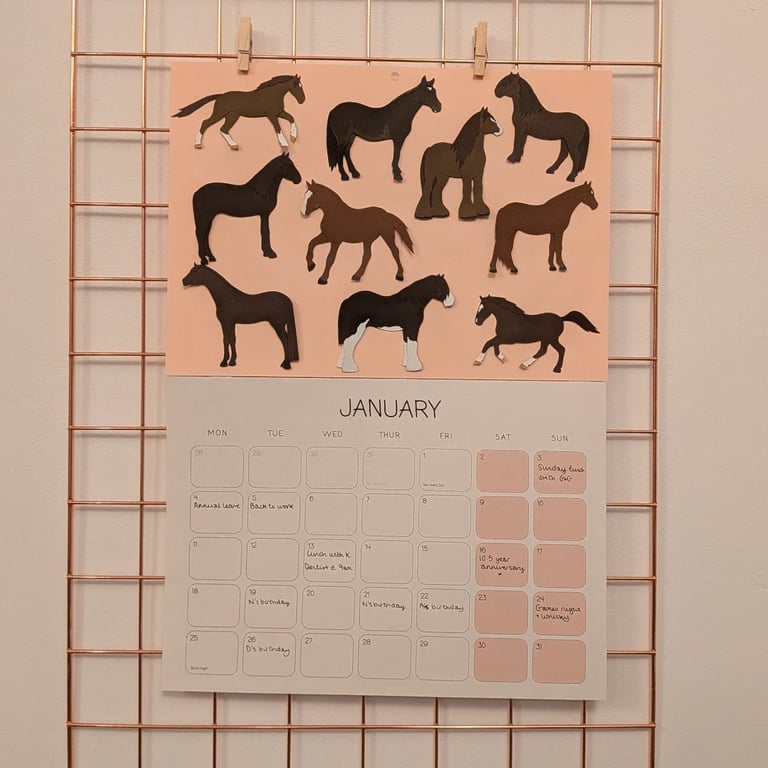 JANUARY
MON TUE WED THUR FRI SAT SUN
28 29 30 31 1 2 3
New Year's Day
Sunday lunch
with G&G
4 5 6 7 8 9 10
Annual leave Back to work
11 12 13 14 15 16 17
Lunch with K
Dentist @ 9am
10.5 year
anniversary
18 19 20 21 22 23 24
N's birthday N's birthday A's birthday
Games night
+ whisky
25 26 27 28 29 30 31
D's birthday
Burns Night